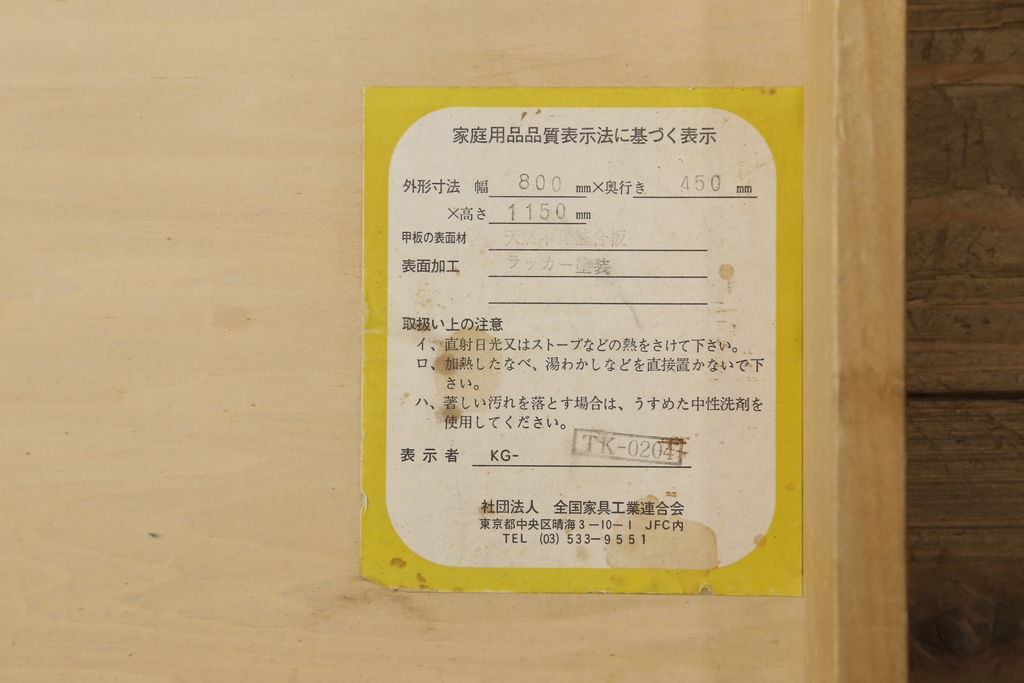 家庭用品品質表示法に基づく表示
外形寸法 幅 800 mm×奥行き 450 mm
×高さ 1150 mm
甲板の表面材 天然木化粧合板
表面加工 ラッカー塗装
取扱い上の注意
イ、直射日光又はストーブなどの熱をさけて下さい。
ロ、加熱したなべ、湯わかしなどを直接置かないで下
さい。
ハ、著しい汚れを落とす場合は、うすめた中性洗剤を
使用してください。
表示者 KG- TK-0204
社団法人 全国家具工業連合会
東京都中央区晴海3-10-1 JFC内
TEL (03) 533-9551